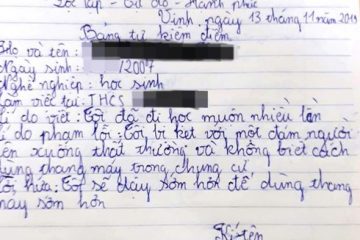 Độc lập - Tự do - Hạnh phúc
Vinh, ngày 13 tháng 11 năm 2019
Bảng tự kiểm điểm
Họ và tên:
Ngày sinh: /2007
Nghề nghiệp: học sinh
Làm việc tại: THCS
Lí do viết: Tôi đã đi học muộn nhiều lần
Lí do phạm lỗi: Tôi bị kẹt với một đám người
lên xuống thất thường và không biết cách
dùng thang máy trong chung cư
Lời hứa: Tôi sẽ dậy sớm hơn để dùng thang
máy sớm hơn
Kí tên